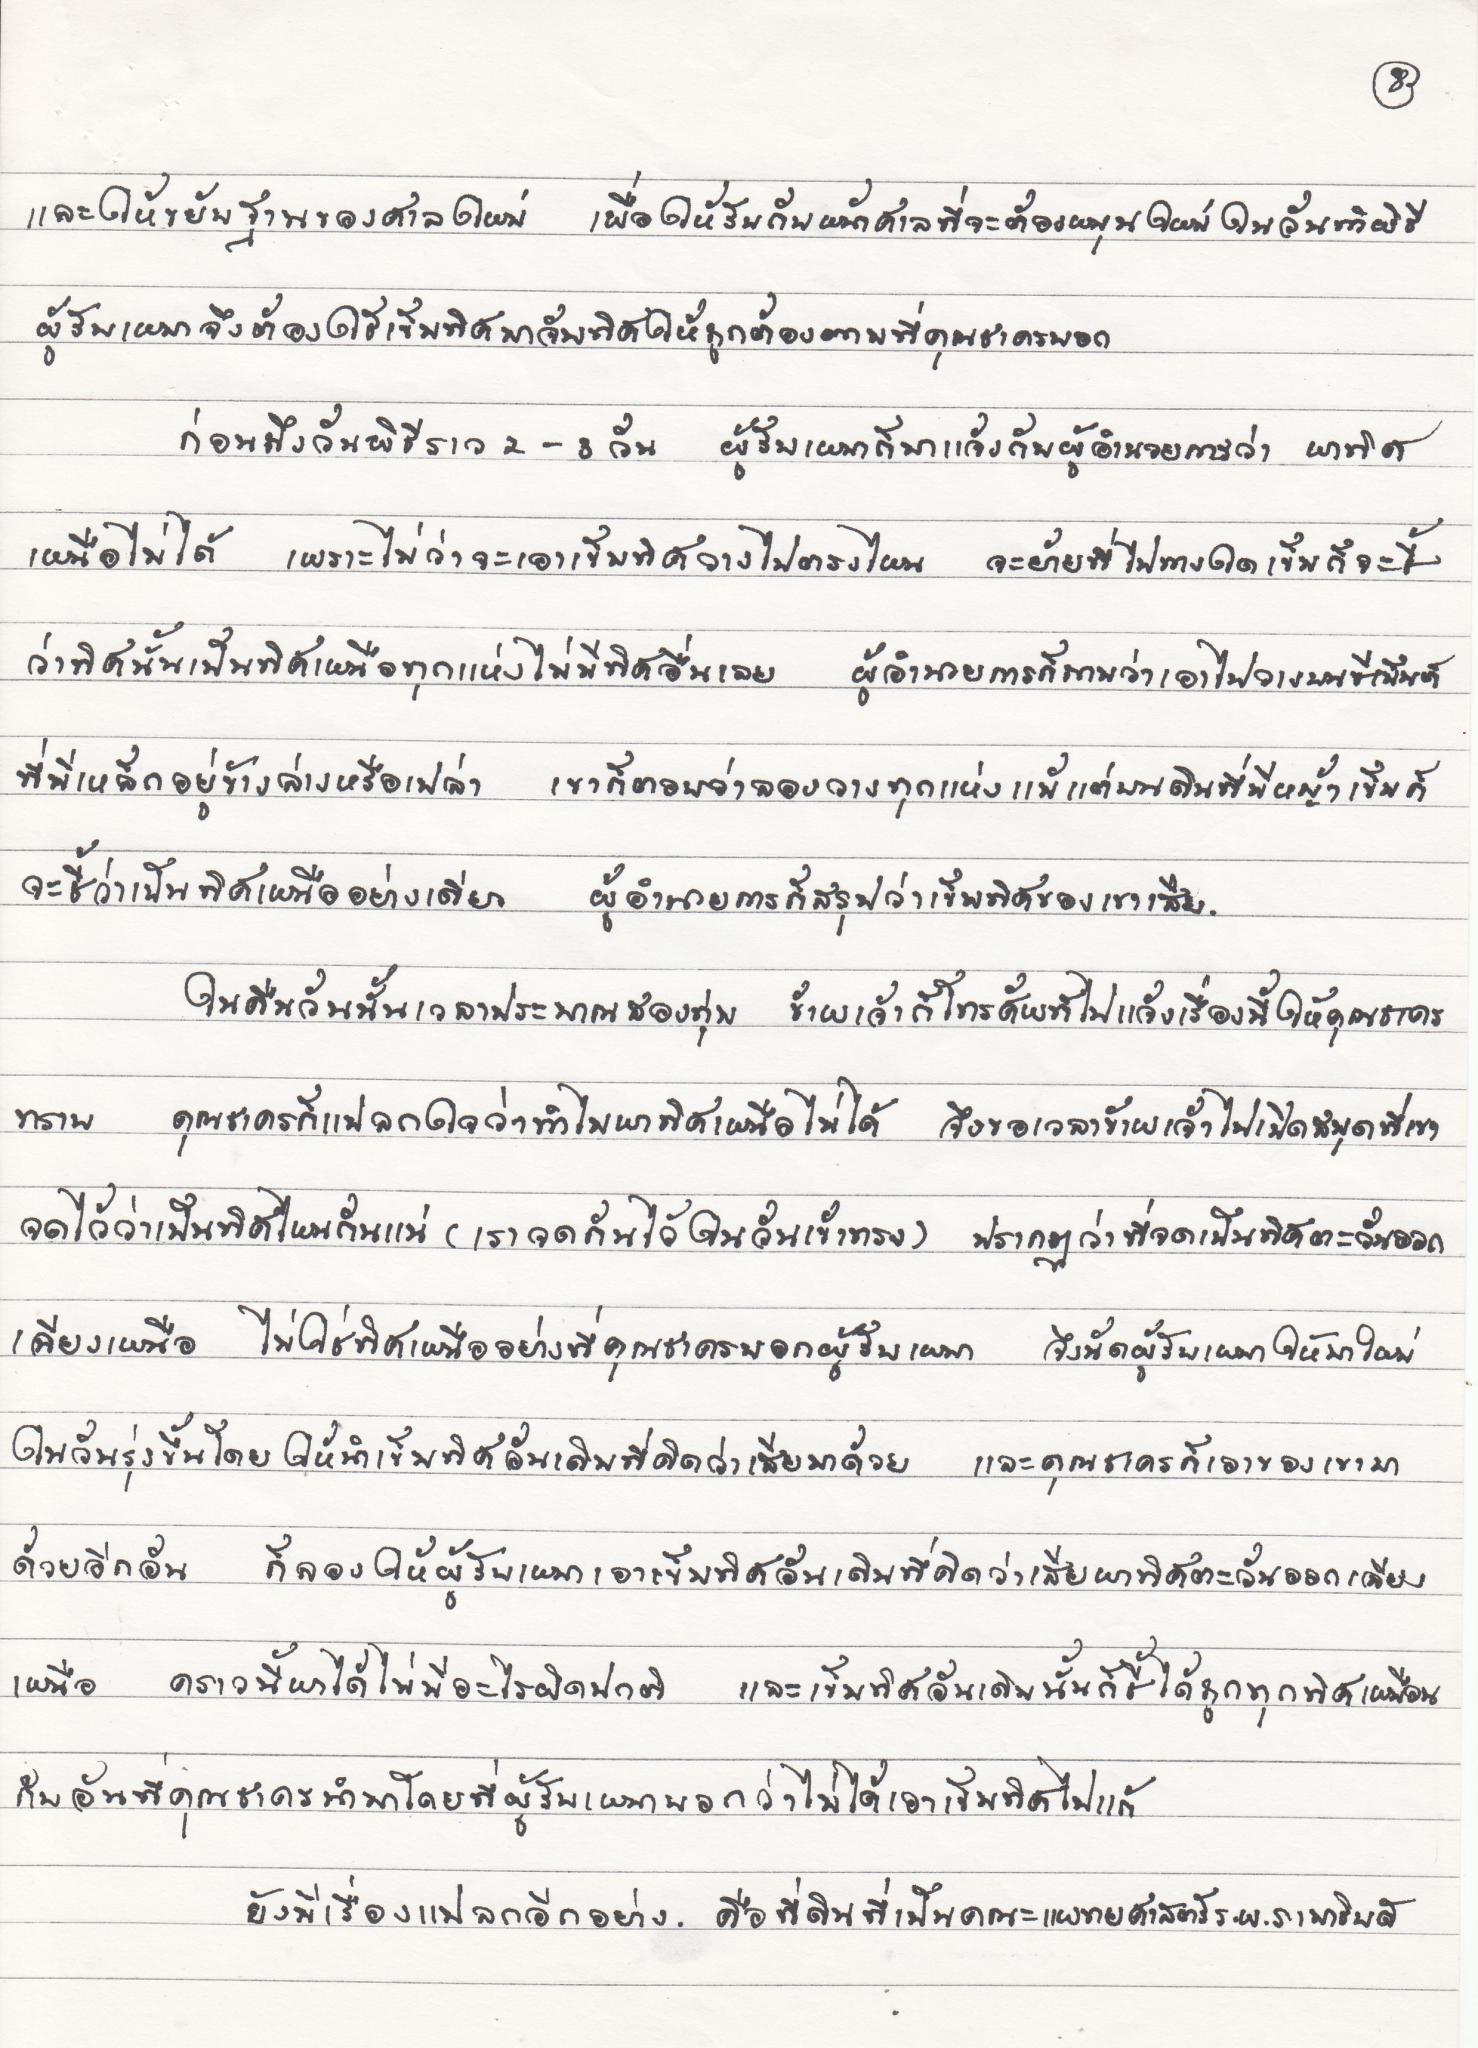 8
และให้ขยับฐานของศาลใหม่ เพื่อให้รับกับหน้าศาลที่จะต้องหมุนใหม่ในวันทำพิธี
ผู้รับเหมาจึงต้องใช้เข็มทิศมาจับทิศให้ถูกต้องตามที่คุณธาดรบอก
ก่อนถึงวันพิธีราว 2-3 วัน ผู้รับเหมาก็มาแจ้งกับผู้อำนวยการว่า หาทิศ
เหนือไม่ได้ เพราะไม่ว่าจะเอาเข็มทิศวางไปตรงไหน จะย้ายที่ไปทางใดเข็มก็จะชี้
ว่าทิศนั้นเป็นทิศเหนือทุกแห่งไม่มีทิศอื่นเลย ผู้อำนวยการก็ถามว่าเอาไปวางบนซีเมนต์
ที่มีเหล็กอยู่ข้างล่างหรือเปล่า เขาก็ตอบว่าลองวางทุกแห่งแม้แต่บนดินที่มีหญ้าเข็มก็
จะชี้ว่าเป็นทิศเหนืออย่างเดียว ผู้อำนวยการก็สรุปว่าเข็มทิศของเขาเสีย.
ในคืนวันนั้นเวลาประมาณสองทุ่ม ข้าพเจ้าก็โทรศัพท์ไปแจ้งเรื่องนี้ให้คุณธาดร
ทราบ คุณธาดรก็แปลกใจว่าทำไมหาทิศเหนือไม่ได้ จึงขอเวลาข้าพเจ้าไปเปิดสมุดที่เขา
จดไว้ว่าเป็นทิศไหนกันแน่ (เราจดกันไว้ในวันเข้าทรง) ปรากฏว่าที่จดเป็นทิศตะวันออก
เฉียงเหนือ ไม่ใช่ทิศเหนืออย่างที่คุณธาดรบอกผู้รับเหมา จึงนัดผู้รับเหมาให้มาใหม่
ในวันรุ่งขึ้นโดยให้นำเข็มทิศอันเดิมที่คิดว่าเสียมาด้วย และคุณธาดรก็เอาของเขามา
ด้วยอีกอัน ก็ลองให้ผู้รับเหมาเอาเข็มทิศอันเดิมที่คิดว่าเสียหาทิศตะวันออกเฉียง
เหนือ คราวนี้หาได้ไม่มีอะไรผิดปกติ และเข็มทิศอันเดิมนั้นก็ชี้ได้ถูกทุกทิศเหมือน
กับอันที่คุณธาดรนำมาโดยที่ผู้รับเหมาบอกว่าไม่ได้เอาเข็มทิศไปแก้
ยังมีเรื่องแปลกอีกอย่าง. คือที่ดินที่เป็นคณะแพทยศาสตร์ร.พ.รามาธิบดี